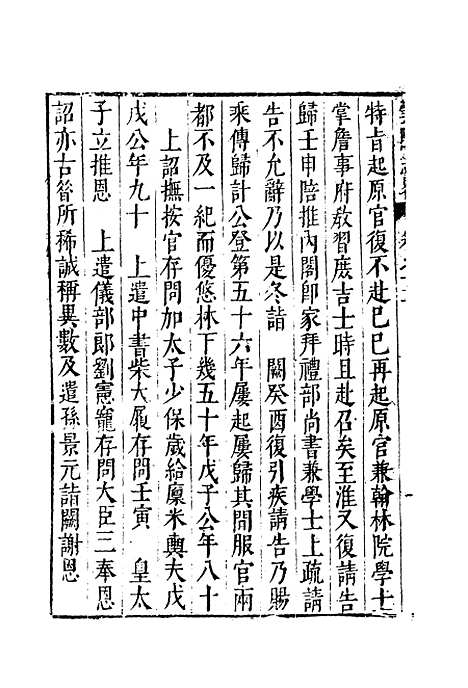 特旨起原官復不赴己巳再起原官兼翰林院學士
掌詹事府敎習庶吉士時且赴召矣至淮又復請告
歸壬申陪推內閣卽家拜禮部尚書兼學士上疏請
告不允辭乃以是冬詣　闕癸酉復引疾請告乃賜
乘傳歸計公登第五十六年屢起屢歸其閒服官兩
都不及一紀而優悠林下幾五十年戊子公年八十
上詔撫按官存問加太子少保歲給廩米輿夫戊
戌公年九十　上遣中書柴大履存問壬寅　皇太
子立推恩　上遣儀部郎劉憲寵存問大臣三奉恩
詔亦古昝所稀誠稱異數及遣孫景元詣闕謝恩